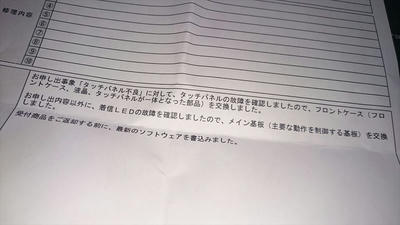 ④
修理内容
⑤
⑥
⑦
⑧
⑨
⑩
お申し出事象「タッチパネル不良」に対して、タッチパネルの故障を確認しましたので、フロントケース（フロ
ントケース、液晶、タッチパネルが一体となった部品）を交換しました。
お申し出内容以外に、着信ＬＥＤの故障を確認しましたので、メイン基板（主要な動作を制御する基板）を交換
しました。
受付商品をご返却する前に、最新のソフトウェアを書込みました。